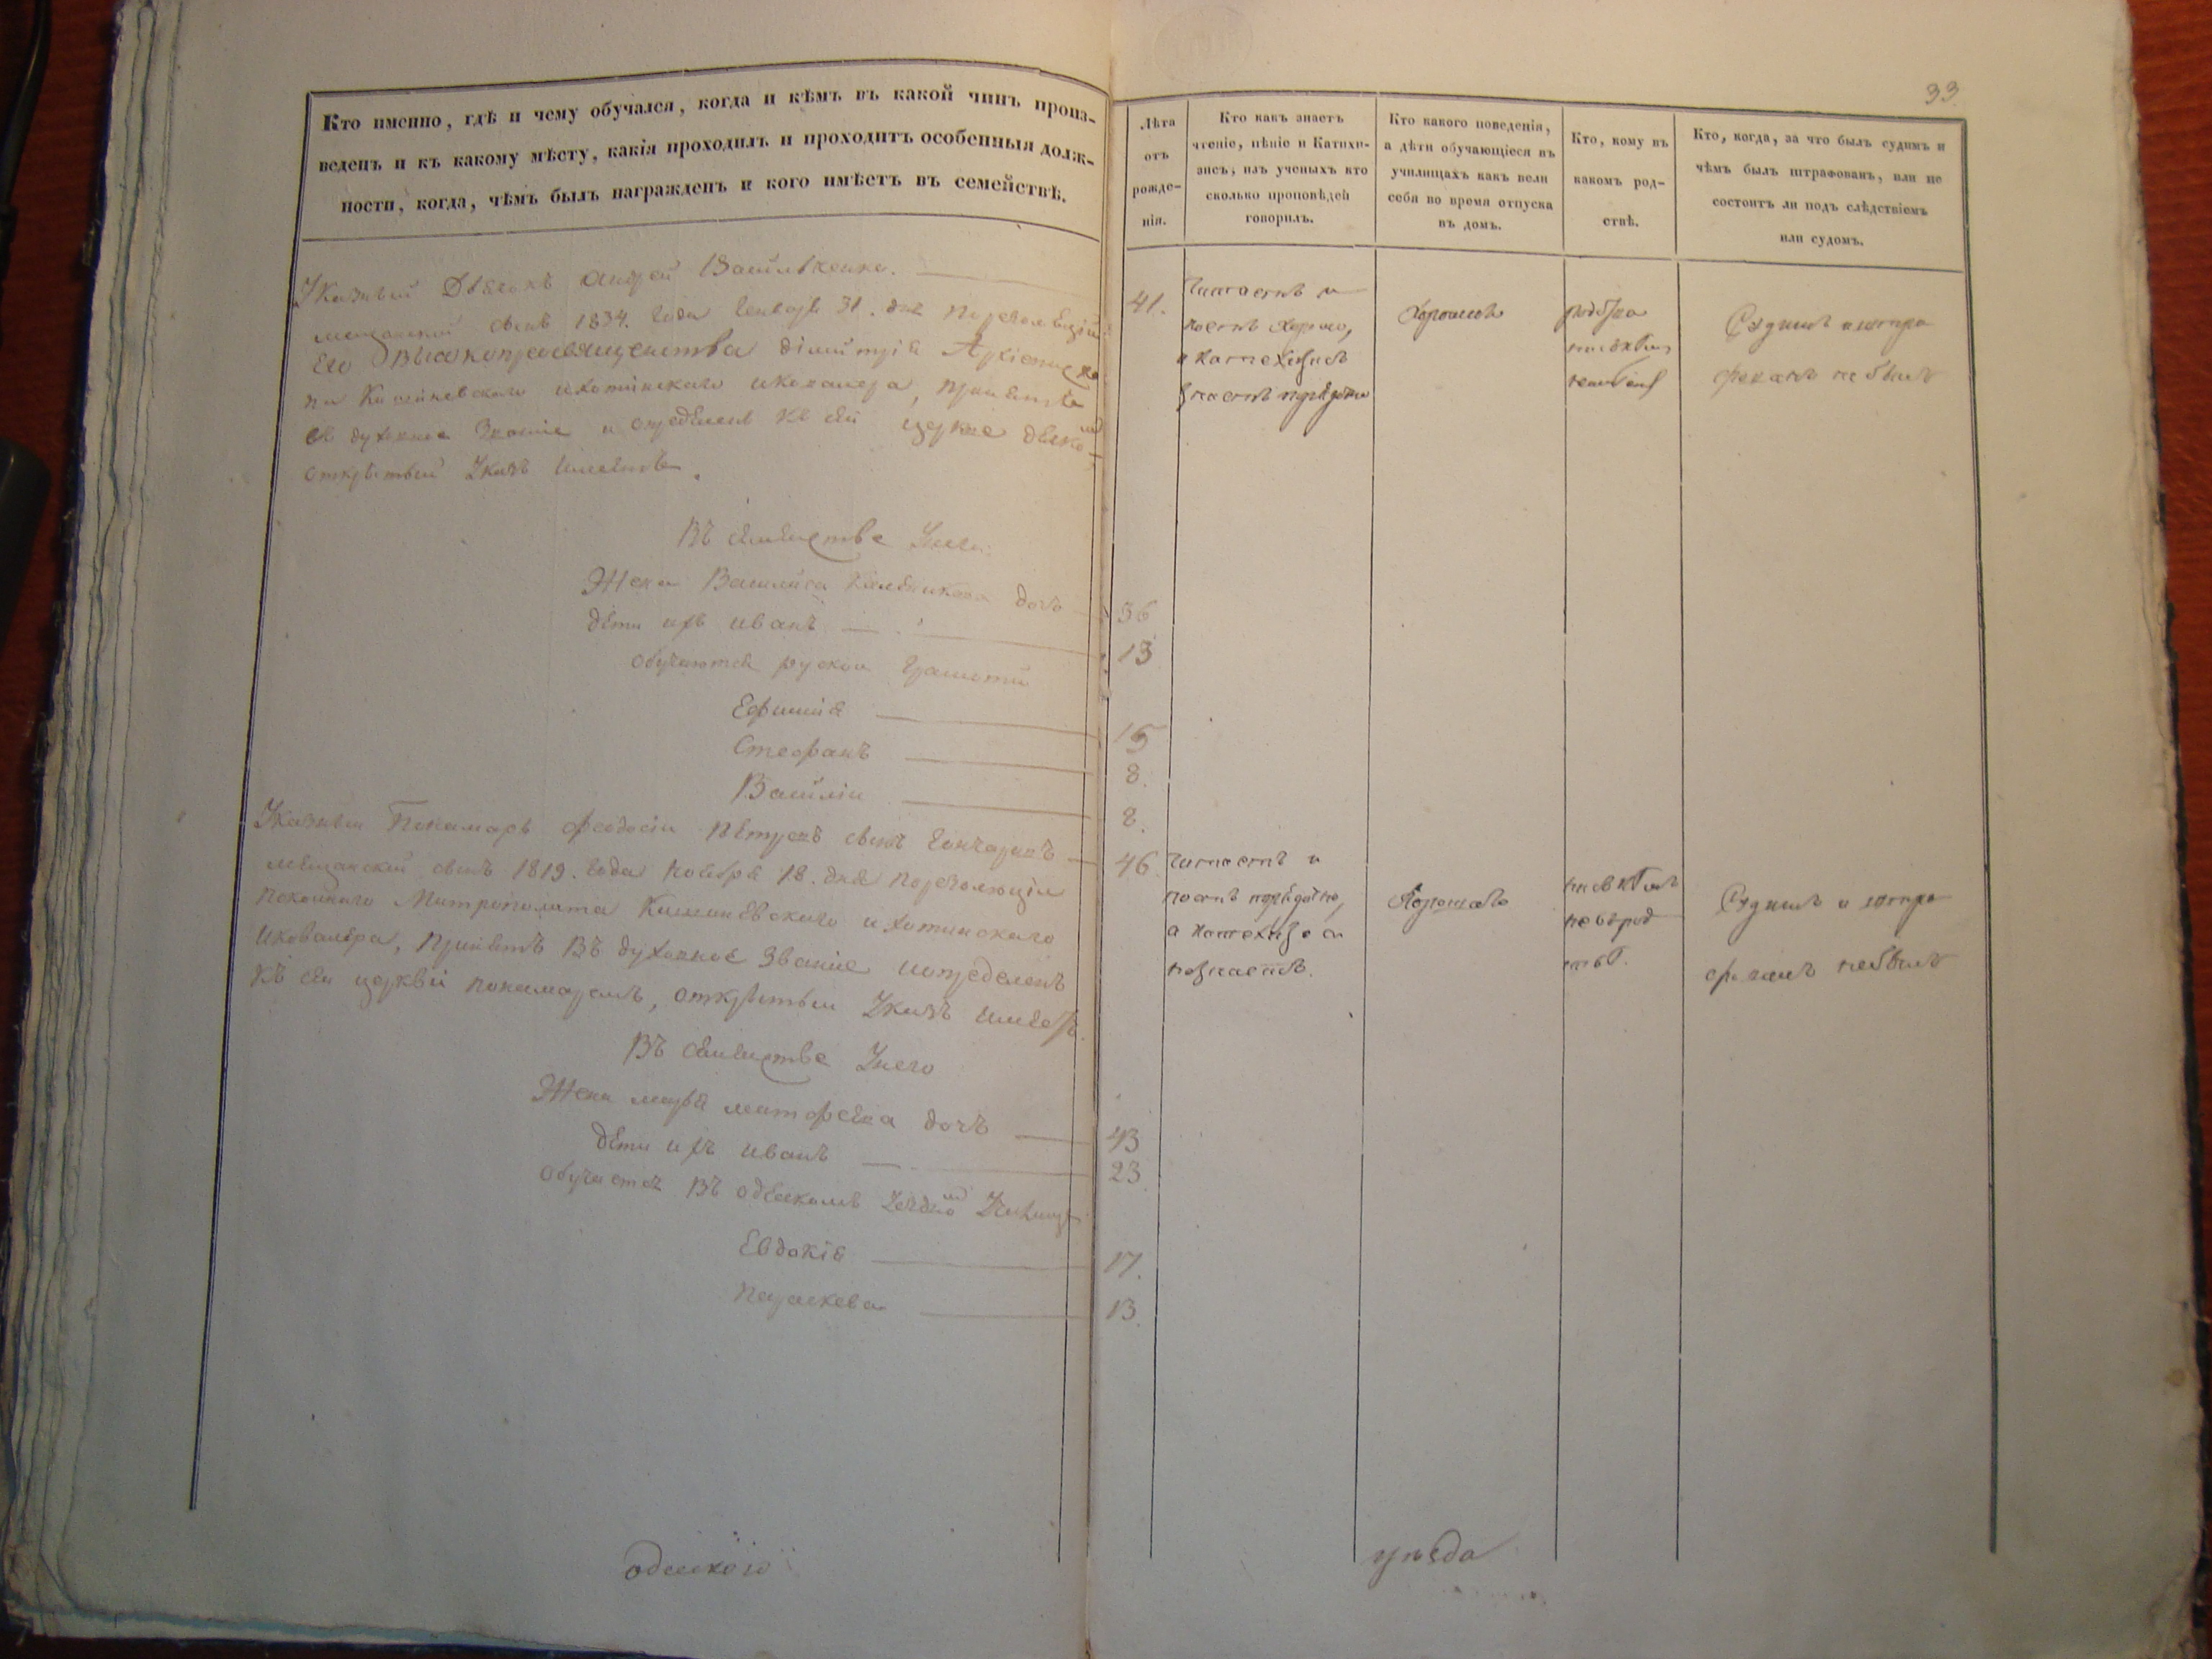 33
Кто именно, гдѣ и чему обучался, когда и кѣмъ въ какой чинъ произ-
веденъ и къ какому мѣсту, какія проходилъ и проходитъ особенныя долж-
ности, когда, чѣмъ былъ награжденъ и кого имѣетъ въ семействѣ.
Лѣта
отъ
рожде-
нія.
Кто какъ знаетъ
чтеніе, пѣніе и Катихи-
зисъ, изъ ученыхъ кто
сколько проповѣдей
говорилъ.
Кто какого поведенія,
а дѣти обучающіеся въ
училищахъ какъ вели
себя во время отпуска
въ домъ.
Кто, кому въ
какомъ род-
ствѣ.
Кто, когда, за что былъ судимъ и
чѣмъ былъ штрафованъ, или не
состоитъ ли подъ слѣдствіемъ
или судомъ.
Указный Дьячокъ Андрей Васильтенко.
мещанскій сынъ 1834. года Генваря 31. дня
Его Высокопреосвященства Димитрія Архіеписко
па Кишиневскаго и хотинскаго икавалера, принятъ
въ духовное Звание и определенъ къ сей церкве
открытый Указъ имеетъ.
41.
Читаетъ и
поетъ хорошо,
и катехизисъ
знаетъ
Хорошаго
Судимъ иштра
фованъ не былъ
Въ семействе Унего
Жена Василиса дочь
36
дети ихъ иванъ
13
обучаются руской грамоти
Ефимія
15
Стефанъ
8.
Василіи
8.
Указныи Понамарь Феодосіи Петровъ сынъ Гончаровъ
46
мещанский сынъ 1819. года Ноября 18. дня порезолюціи
покойнаго Митрополита Кишиневскаго и хотинскаго
икавалера, принятъ Въ духовное Звание иопределенъ
къ сеи церквіи понамаремъ, открытыи Указъ имеетъ.
читаетъ и
поетъ
а катехизиса
незнаетъ.
Хорошаго
Судимъ и штра
фованъ небылъ
Въ семействе Унего
Жена дочь
43
дети ихъ иванъ
23
обучается Въ одескомъ
Евдокія
17.
Параскева
13.
одескаго
уезда